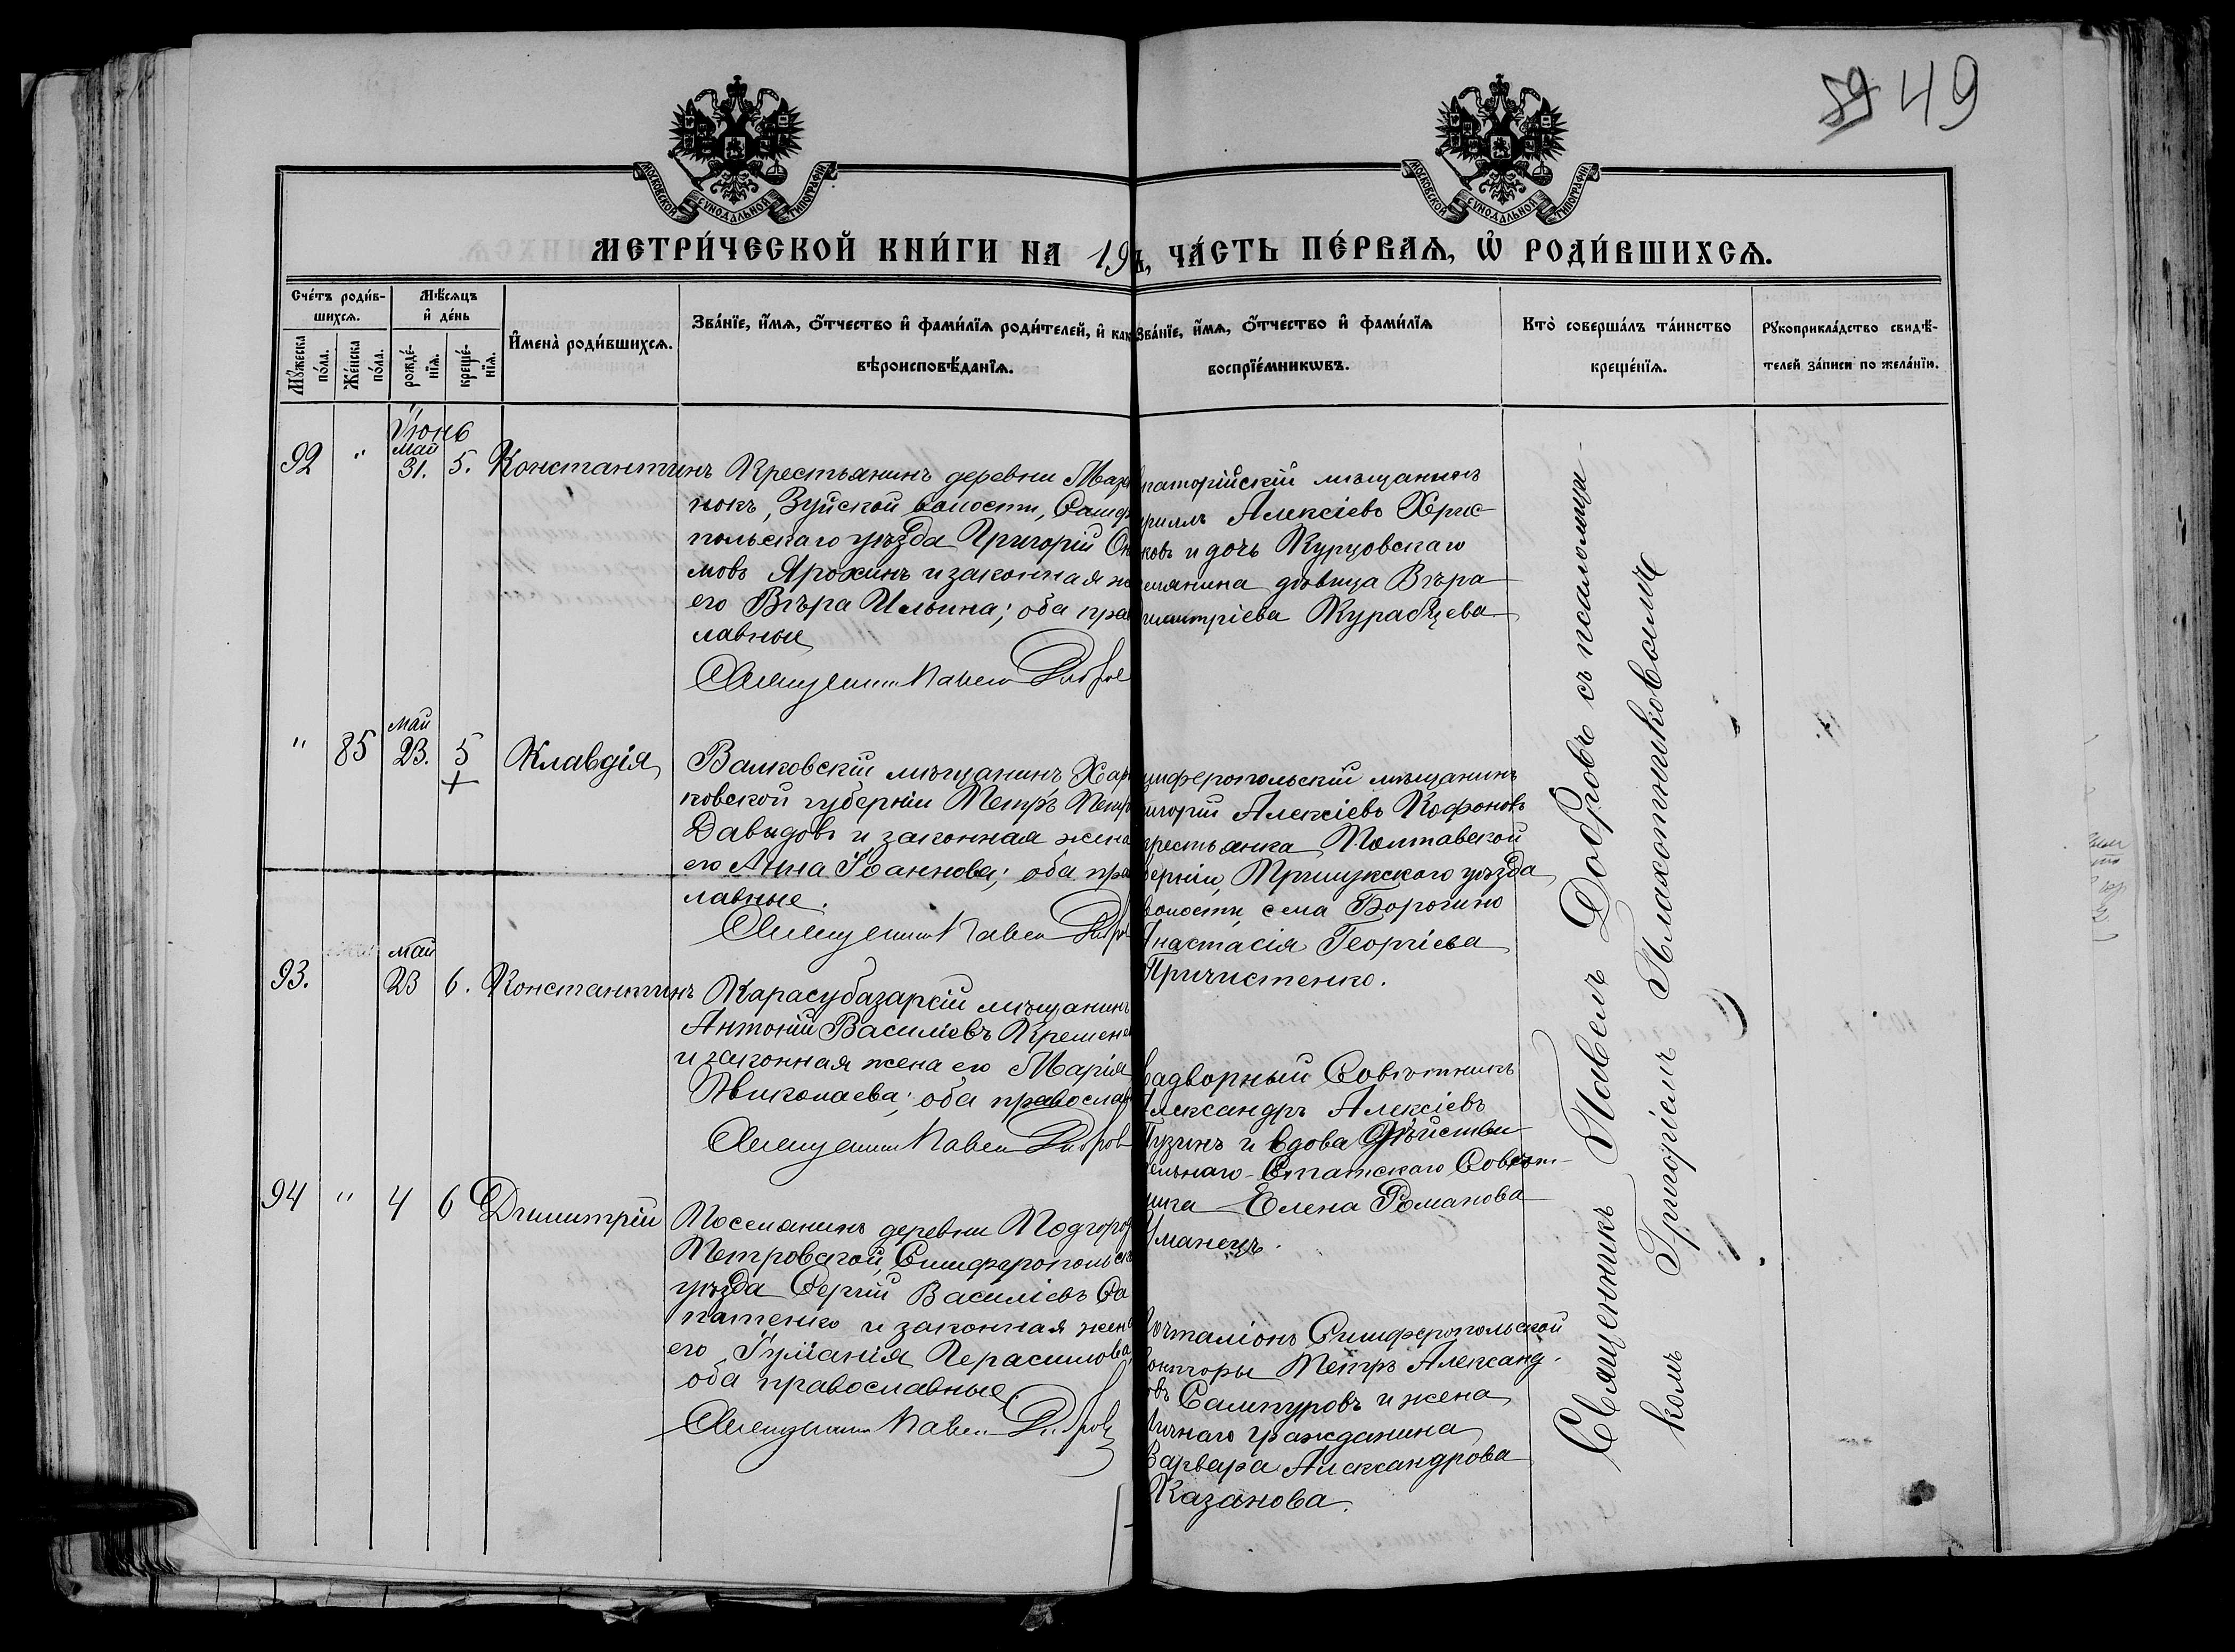 59 49
МОСКОВСКОЙ СѴНОДАЛЬНОЙ ТИПОГРАФІИ
МОСКОВСКОЙ СѴНОДАЛЬНОЙ ТИПОГРАФІИ
МЕТРИ́ЧЕСКОЙ КНИ́ГИ НА 19
ЧА́СТЬ ПЕ́РВАѦ, Ѡ҆ РОДИ́ВШИХСѦ.
Сче́тъ роди́в-
шихсѧ.
Мѣ́сѧцъ
и҆ де́нь
Мꙋ́жеска по́ла.
Же́нска по́ла.
рожде́-
нїѧ.
креще́-
нїѧ.
И҆мена̀ роди́вшихсѧ.
Зва́нїе, и҆́мѧ, ѻ҆́тчество и҆ фами́лїѧ роди́телей, и҆ как
вѣроисповѣ́данїѧ.
Зва́нїе, и҆́мѧ, ѻ҆́тчество и҆ фами́лїѧ
воспрїе́мникѡвъ.
Кто̀ соверша́лъ та́инство
креще́нїѧ.
Рꙋкоприкла́дство свидѣ́-
телей за́писи по жела́нїю.
Іюнь
92 " май 31. 5. Константинъ
Крестьянинъ деревни Маза
нокъ, Зуйской волости, Симф
польскаго уѣзда Григорій Он
мовъ Ярохинъ и законная же
его Вѣра Ильина; оба пра
лавные
Священникъ Павелъ Добров
паторійскій мѣщанинъ
риллъ Алексіевъ Хрис
ковъ и дочь Курцовскаго
селянина дѣвица Вѣра
имитріева Курабцева.
" 85 май 23. 5 Клавдія
+
Валковскій мѣщанинъ Хар
ковской губерніи Петръ Петр
Давыдовъ и законная жена
его Анна Іоаннова; оба пра
лавные.
Священникъ Павелъ Добров
имферопольскій мѣщанинъ
игорій Алексіевъ Кофоновъ
крестьянка Полтавской
берніи, Прилукскаго уѣзда
волости, села
Анастасія Георгіева
Причистенко.
93. май 23 6. Константинъ
Карасубазарскій мѣщанинъ
Антоній Василіевъ Кремене
и законная жена его Марія
Николаева; оба православ
Священникъ Павелъ Добров
Надворный Совѣтникъ
Александръ Алексіевъ
Пузинъ и вдова Дѣйстви
ельнаго Статскаго Совѣт-
ника Елена Романова
Уманецъ.
94 " 4 6 Димитрій
Поселянинъ деревни Подгород
Петровской, Симферопольск
уѣзда Сергій Василіевъ Са
патенко и законная жена
его Іуліанія Герасимова
оба православные
Священникъ Павелъ Добровъ
Почталіонъ Симферопольской
конторы Петръ Александ-
овъ Сампуровъ и жена
личнаго гражданина
Варвара Александрова
Казанова.
Священникъ Павелъ Добровъ съ псаломщи-
комъ Григоріемъ Плахотниковомъ